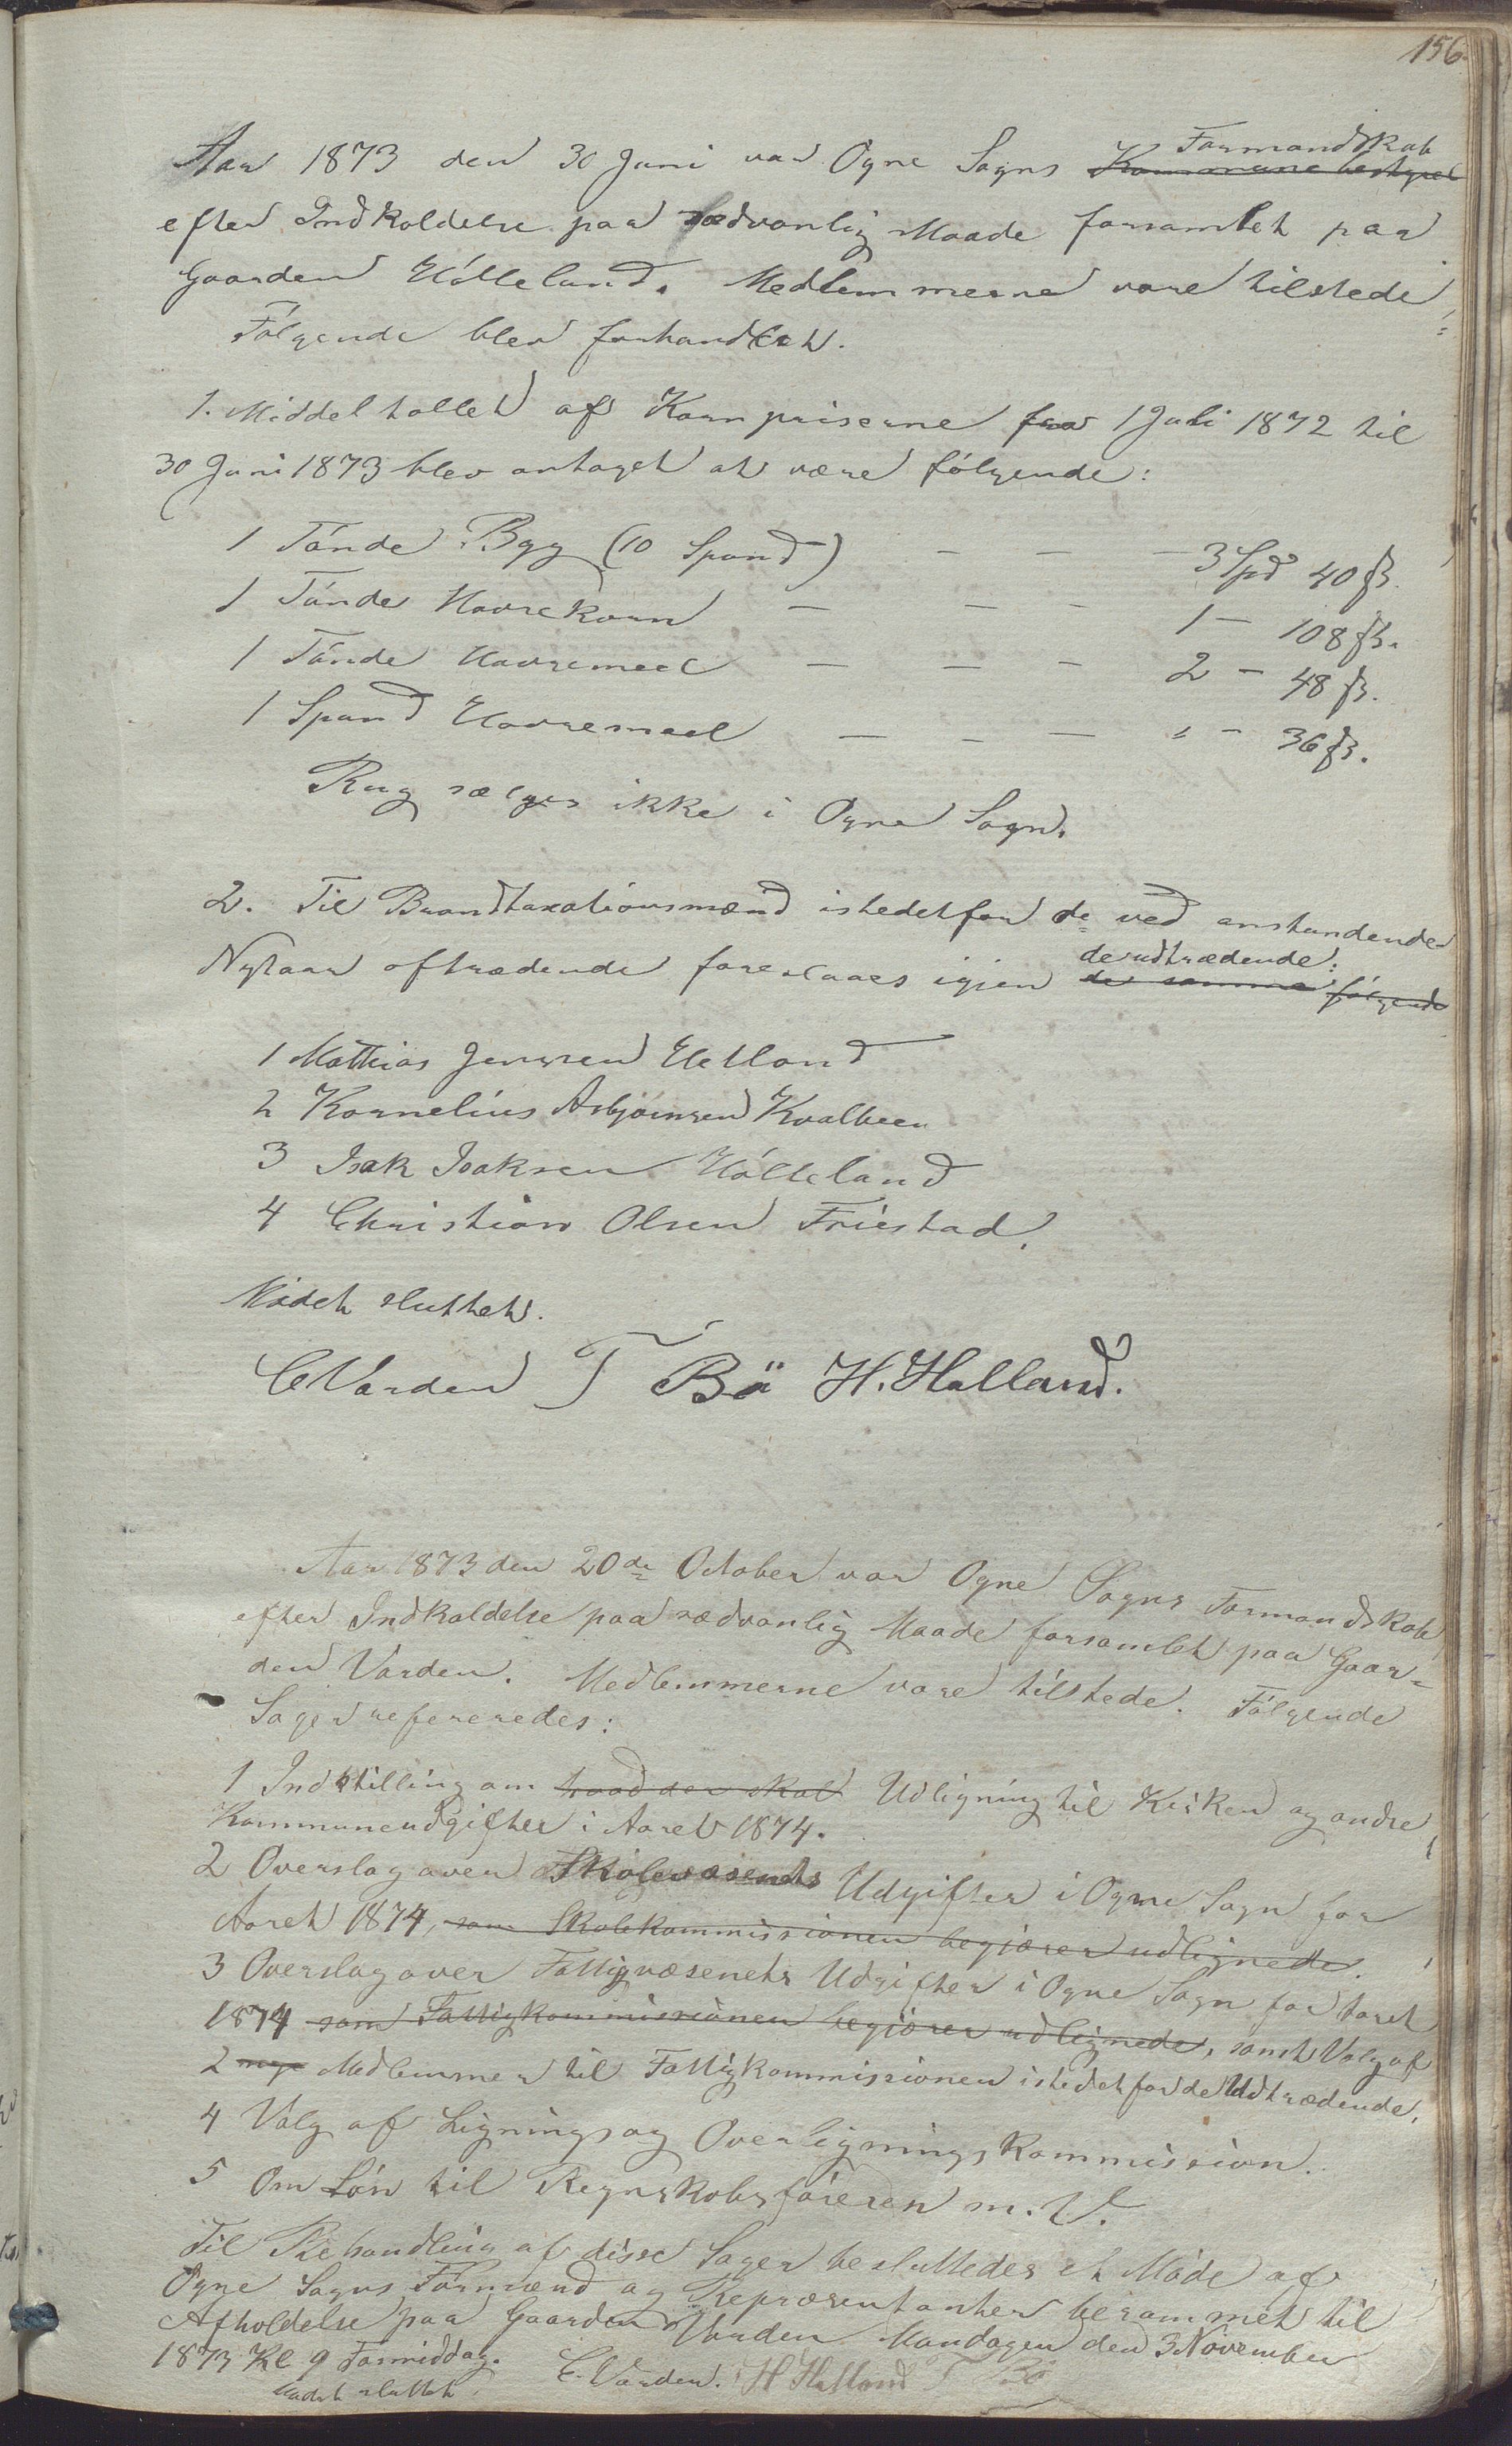 156
Aar 1873 den 30 Juni var Ogne Sogns Formandskab Kommunebestyrel
efter Indkaldelse paa sædvanlig Maade forsamlet paa
Gaarden Hølleland. Medlemmerne vare tilstede.
Følgende blev forhandlet.
1. Middeltallet af Kornpriserne fra 1 Juli 1872 til
30 Juni 1873 blev antaget at være følgende:
1 Tønde Byg (10 Spand) — — — 3 Spd 40 ß.
1 Tønde Havrekorn — — — 1 — 108 ß.
1 Tønde Havremeel — — — 2 — 48 ß.
1 Spand Havremeel — — — " — 36 ß.
Rug sælges ikke i Ogne Sogn.
2. Til Brandtaxationsmænd istedetfor de ved anstundende
Nytaar aftrædende foreslaaes igjen de udtrædende: de samme følgende
1 Mathias Jenssen Hetland
2 Kornelius Asbjörnsen Kvalbeen
3 Isak Isaksen Hølleland
4 Christian Olsen Friestad.
Mødet sluttet.
C Varden T Bö H. Halland.
Aar 1873 den 20de October var Ogne Sogns Formandskab
efter Indkaldelse paa sædvanlig Maade forsamlet paa Gaar-
den Varden. Medlemmerne vare tilstede. Følgende
Sager refereredes:
1 Indstilling om hvad der skal Udligning til Kirken og andre
Kommuneudgifter i Aaret 1874.
2 Overslag over Skolevæsenets Udgifter i Ogne Sogn for
Aaret 1874, som Skolekommissionen begjærer udlignede.
3 Overslag over Fattigvæsenets Udgifter i Ogne Sogn for Aaret
1874 som Fattigkommissionen begjærer udlignede, samt Valg af
2 nye Medlemmer til Fattigkommissionen istedetfor de Udtrædende.
4 Valg af Lignings og Overligningskommission.
5 Om Løn til Regnskabsføreren m. V.
Til Behandling af disse Sager besluttedes et Møde af
Ogne Sogns Formænd og Repræsentanter berammet til
Afholdelse paa Gaarden Varden Mandagen den 3 November
1873 Kl 9 Formiddag. C. Varden. H Halland T Bö
Mødet sluttet.